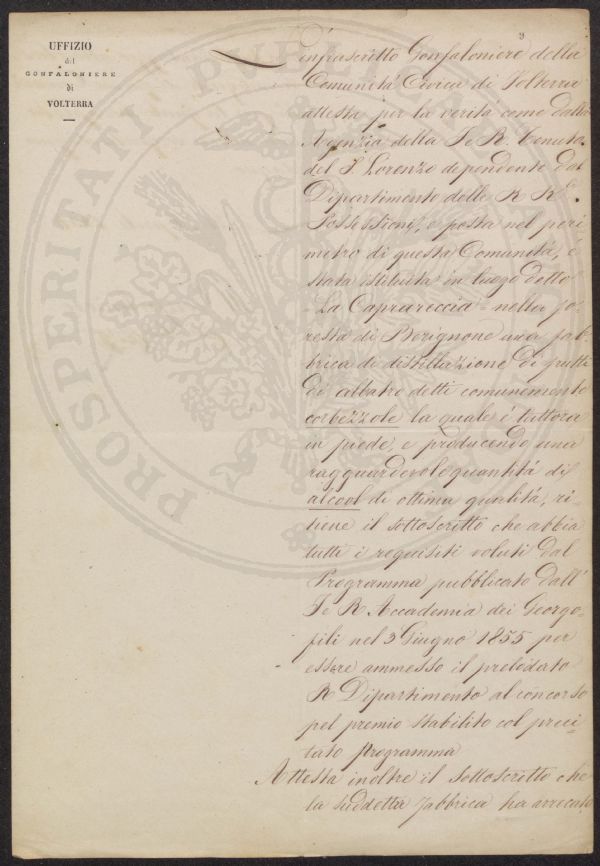 UFFIZIO
del
GONFALONIERE
di
VOLTERRA
9
L'infrascritto Gonfaloniere della
Comunità Civica di Volterra
attesta per la verità come dalla
Agenzia della I e R. Tenuta
del S. Lorenzo dipendente dal
Dipartimento delle R R
Possessioni, e posta nel peri
metro di questa Comunità, é
stata istituita in luogo detto
"La Caprareccia" nella fo-
resta di Berignone una fab-
brica di distillazione di frutti
di albatro detti comunemente
corbezzole la quale é tuttora
in piede, e producendo una
ragguardevole quantità di
alcool di ottima qualità, ri-
tiene il sottoscritto che abbia
tutti i requisiti voluti dal
Programma pubblicato dall'
I e R Accademia dei Georgo-
fili nel 3 Giugno 1855 per
essere ammesso il prelodato
R Dipartimento al concorso
pel premio stabilito col preci-
tato Programma
Attesta inoltre il Sottoscritto che
la suddetta fabbrica ha arrecato
PROSPERITATI PVBLICAE